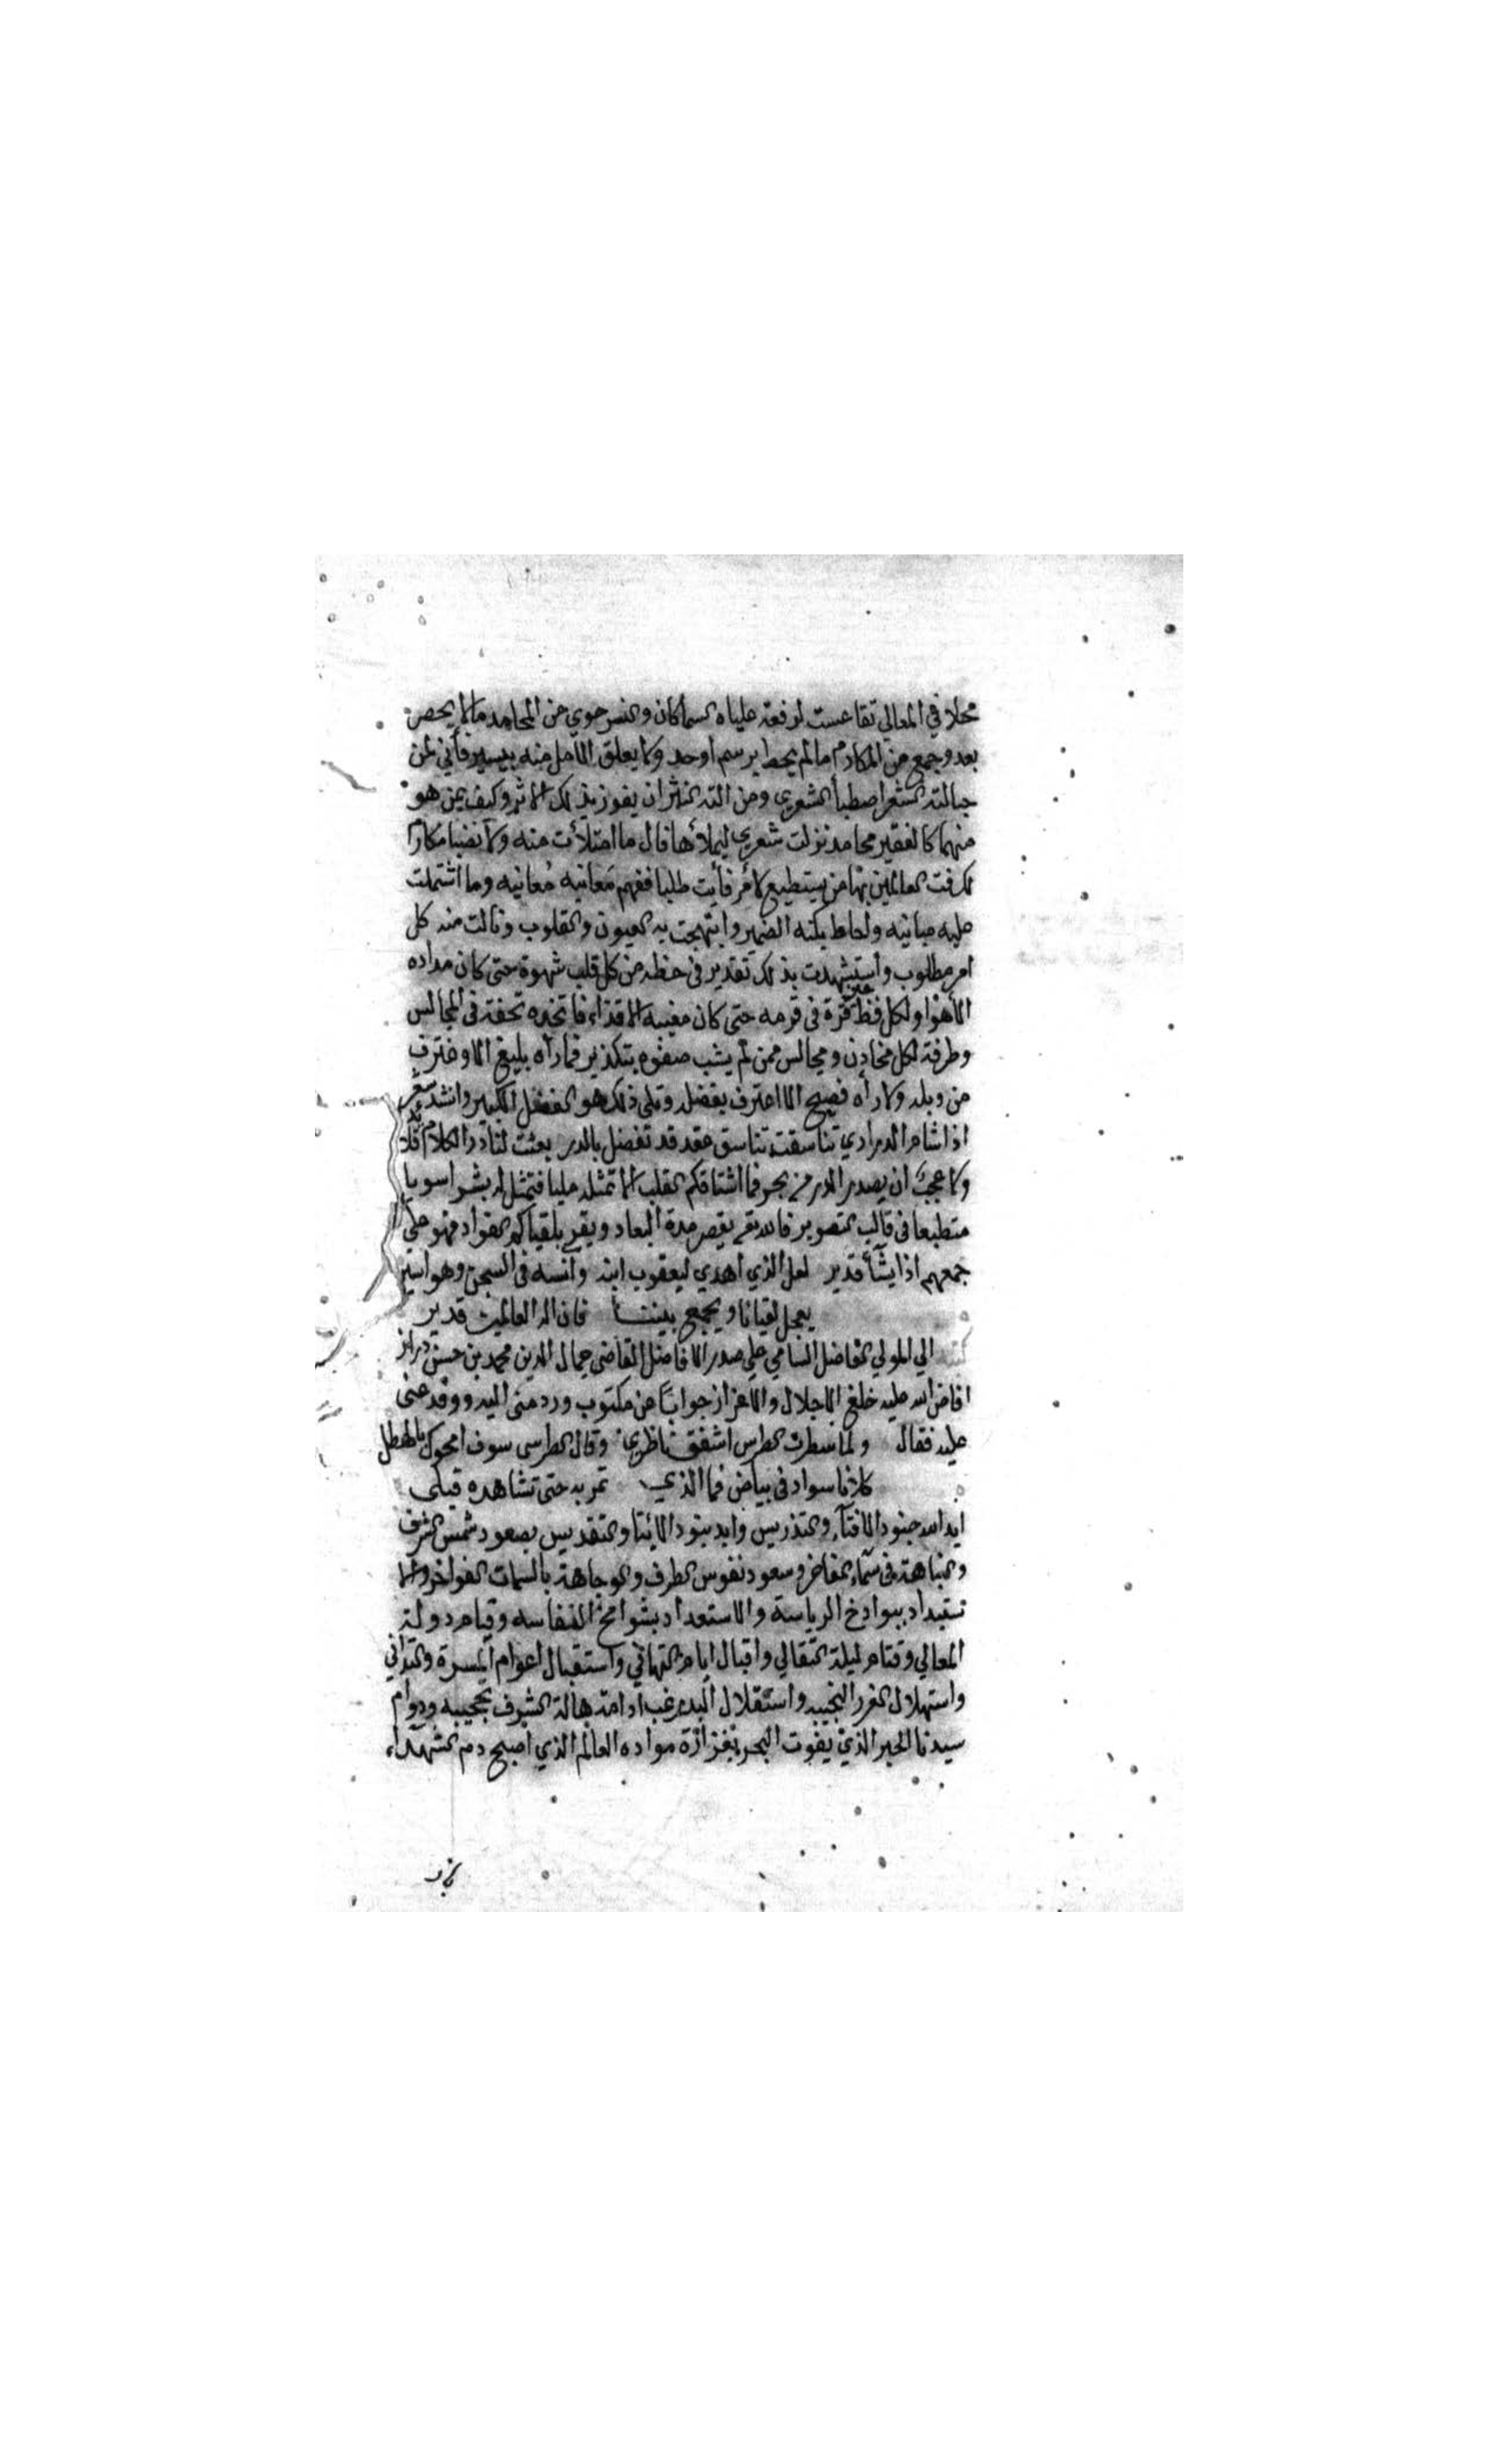 محلا في المعالي تقاعست لرفعة علياه السماكان والنسر حوي من المحامد مالا يحصر
بعد وجمع من المكارم مالم يحط برسم اوحد ولا يعلق الامل منه بيسير فأني لمن
حبالته الشعر اصطيأ الشعرى ومن الته النثر ان يفوز بذلك الاثر وكيف بمن هو
منهما كالفقير محامد نزلت شعري ليملأها قال ما امتلأت منه ولا نضبا مكارم
لم يستطيع طلبا ففهم مَعانيه مُعانيه وما اشتملت
عليه مبانيه واحاط بكنه الضمير وابتهجت به العيون والقلوب ونالت منه كل
امر مطلوب واستشهدت بذلك تقدير في حظه من كل قلب شهوة حتى كان مداده
الأهوا ولكل عين قرة في قربه حتى كان مغيبه الاقذاء فاتخذه تحفة في المجالس
وطرفة لكل مخادن ومجالس ممن لم يشب صفوه بتكدير فما رآه بليغ الا وغترف
من وبله ولا رآه فصيح الا اعترف بفضله وتلى ذلك هو الفضل الكبير وانشد شعر
اذا شام الدراري تناسقت تناسق عقد قد تفضل بالدر بعثت لنا در الكلام قلائد
ولا عجبٌ ان يصدر الدر من بحر فما اشتاقكم القلب الا تمثله مليا فتمثل له بشرا سويا
منطبعا في قالب التصوير فالله تع يقصر مدة البعاد ويقر بلقياكم الفواد فهو على
جمعهم اذا يشآء قدير لعل الذي اهدي ليعقوب ابنه وانسه في السجن وهو اسير
يعجل لقيانا ويجمع بيننا فان اله العالمين قدير
الي المولي الفاضل السامي علي صدر الافاضل القاضي جمال الدين محمد بن حسن دراز
افاض الله عليه خلع الاجلال والاعزاز جوابًا عن مكتوب ورد مني اليه ووفد عني
عليه فقال ولما سطرت الطرس اشفق ناظري وقال لطرسي سوف امحوك بالهطل
كلانا سواد في بياض فما الذي تمر به حتى تشاهده قبلي
ايد الله جنود الافتآء والتدريس وابد بنود والتقديس بصعود شمس الشرف
والنباهة في سمآء المفاخر وسعود نفوس الطرف والوجاهة بالسمات الفواخر والا
ستبداد ببواذخ الرياسة والاستعداد بشوامخ النفاسه وقيام دولة
المعالي وقتام ليلة التقالي واقبال ايام التهاني واستقبال اعوام المسرة والتداني
واستهلال الغرر النجيبه واستقلال البدر غب ادامة هالة الشرف بحجيبه ودوام
سيدنا الحبر الذي يفوت البحر بغزازة مواده العالم الذي اصبح دم الشهدآء